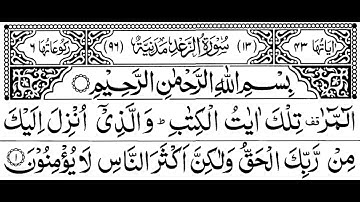 اٰیَاتُهَا ۴۳ (۱۳) سُوْرَةُ الرَّعْدِ مَدَنِیَّةٌ (۹۶) رُكُوْعَاتُهَا ۶
بِسْمِ اللّٰهِ الرَّحْمٰنِ الرَّحِیْمِ
الٓمّٓرٰ قف تِلْكَ اٰیٰتُ الْكِتٰبِ ؕ وَ الَّذِیْۤ اُنْزِلَ اِلَیْكَ
مِنْ رَّبِّكَ الْحَقُّ وَ لٰكِنَّ اَكْثَرَ النَّاسِ لَا یُؤْمِنُوْنَ ۱